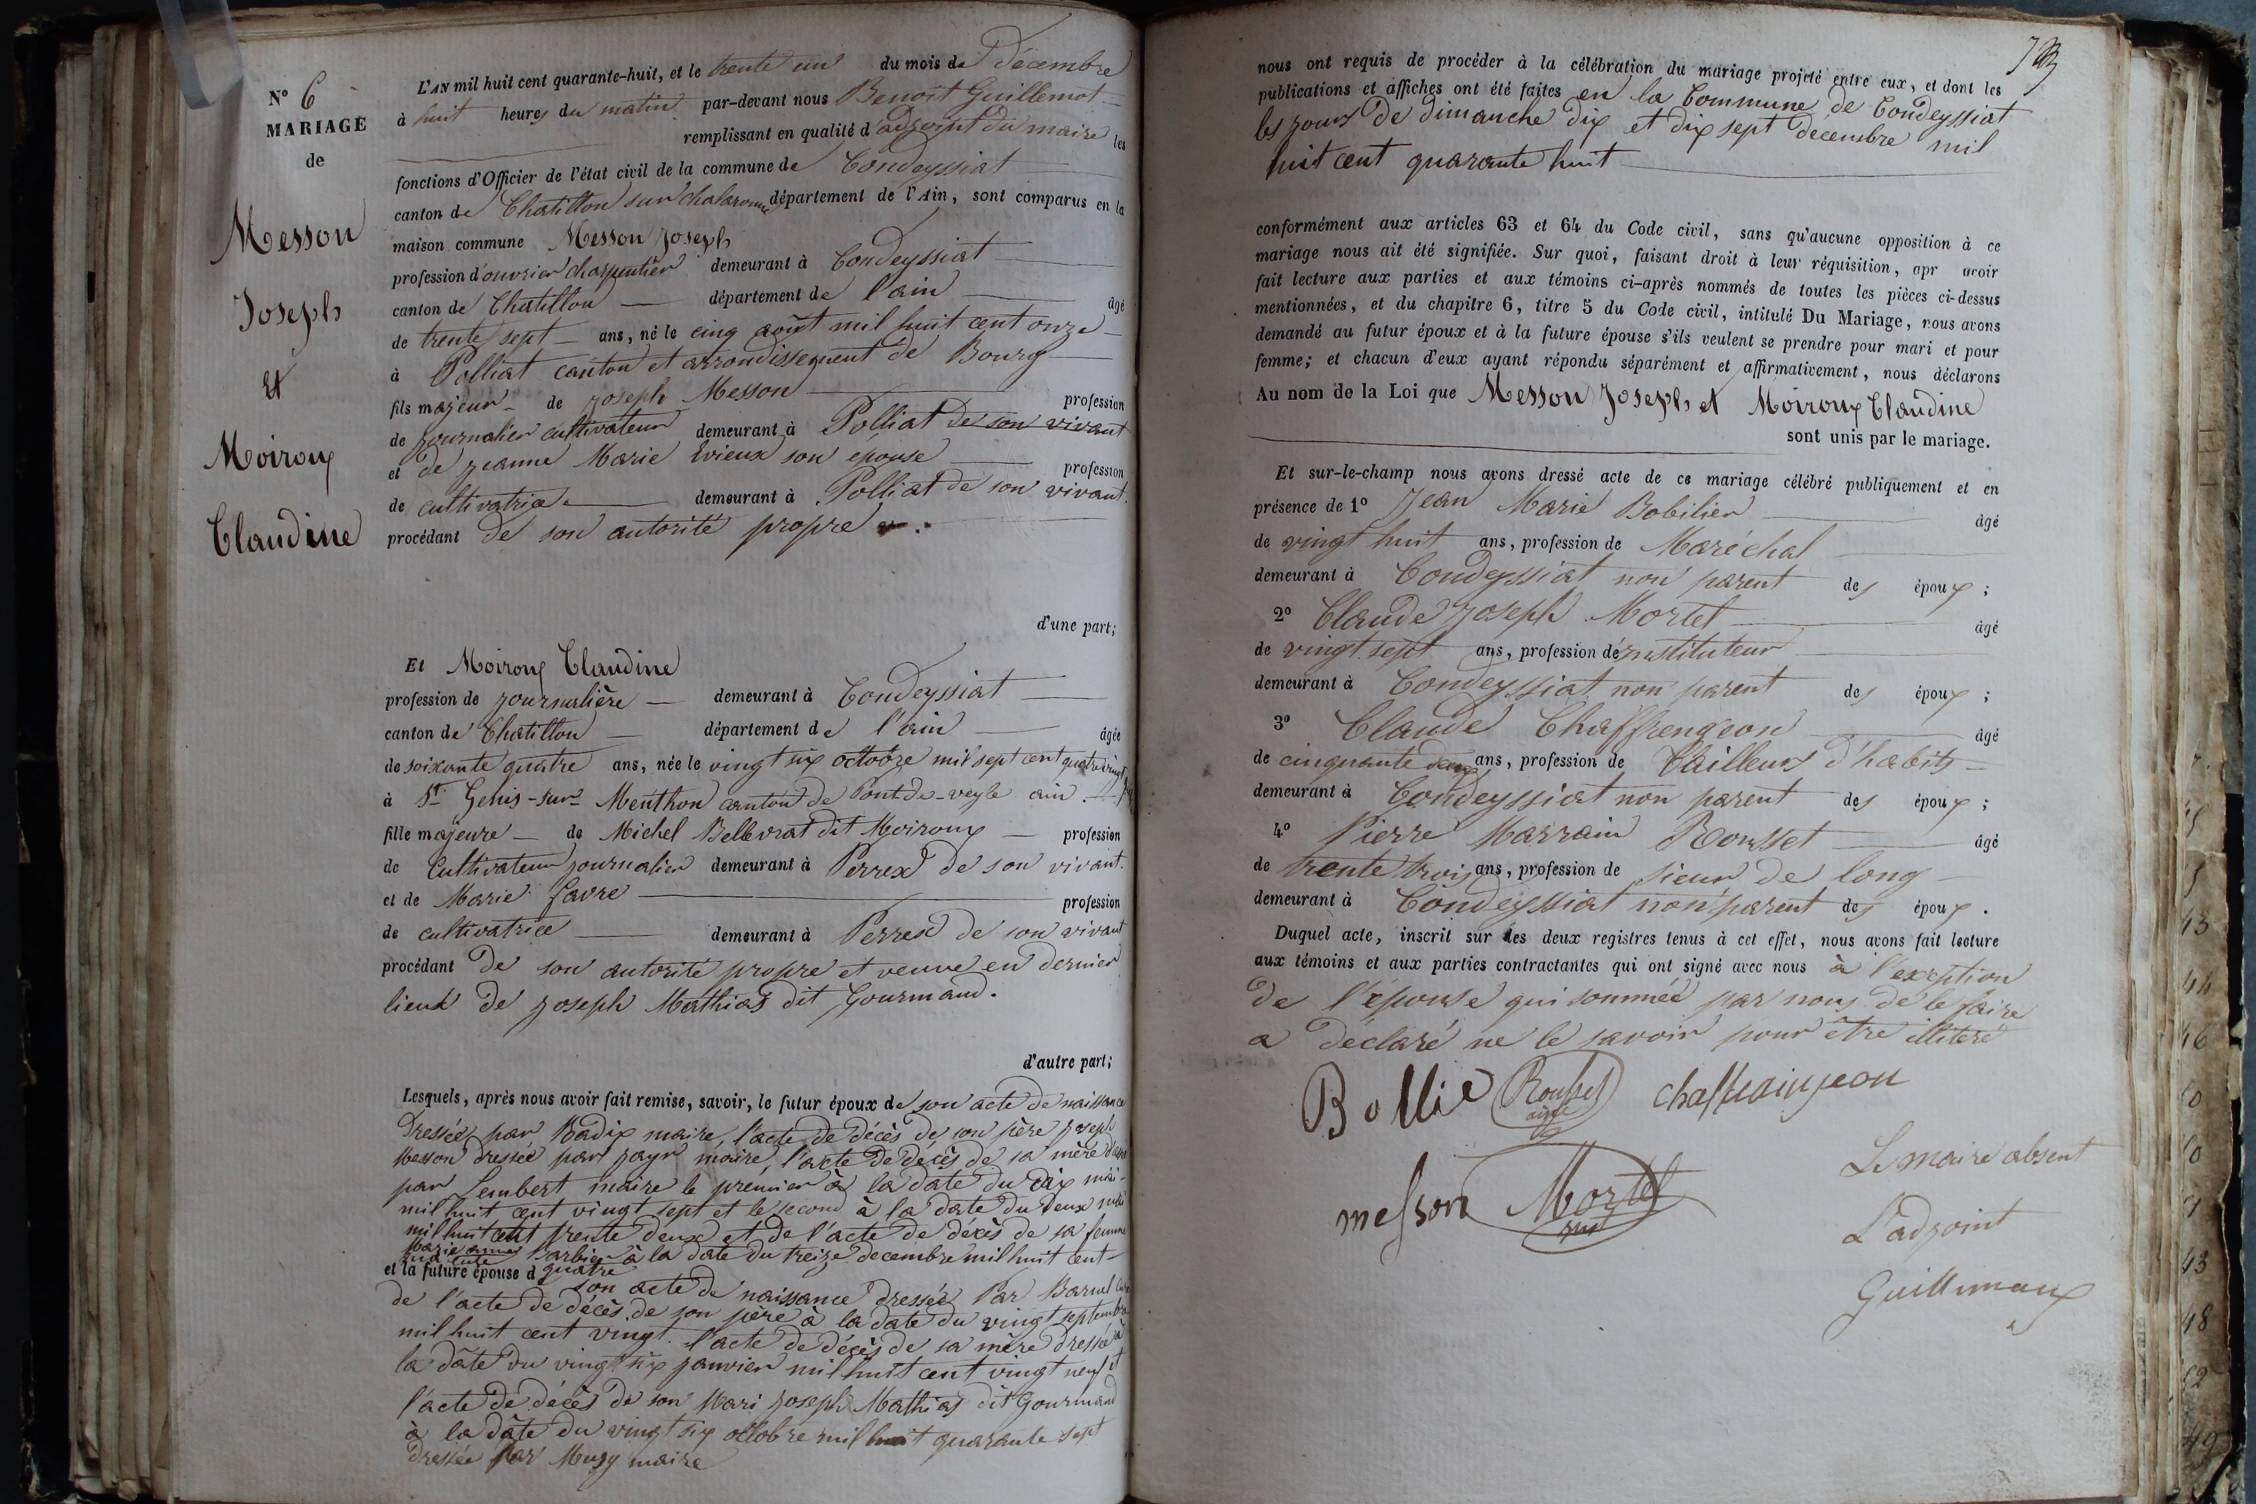 N° 6
MARIAGE
de
Messon
Joseph
et
Moiroux
Claudine
L'AN mil huit cent quarante-huit, et le trente un du mois de Décembre
à huit heures du matin par-devant nous Benoît Guillemot
remplissant en qualité d'adjoint du maire les
fonctions d'Officier de l'état civil de la commune de Condeyssiat
canton de Chatillon sur chalaronne département de l'Ain, sont comparus en la
maison commune Messon Joseph
profession d'ouvrier charpentier demeurant à Condeyssiat
canton de Chatillon département de l'ain âgé
de trente sept ans, né le cinq août mil huit cent onze
à Polliat canton et arrondissement de Bourg
fils majeur de Joseph Messon profession
de journalier cultivateur demeurant à Polliat de son vivant
et de Jeanne Marie Evieux son épouse profession
de cultivatrice demeurant à Polliat de son vivant.
procédant de son autorité propre
d'une part;
Et Moiroux Claudine
profession de journalière demeurant à Condeyssiat
canton de Chatillon département de l'ain âgée
de soixante quatre ans, née le vingt six octobre mil sept cent quatrevingt
à St Genis-sur-Menthon canton de Pont-de-veyle ain.
fille majeure de Michel Bellevrat dit Moiroux profession
de Cultivateur journalier demeurant à Perrex de son vivant.
et de Marie favre profession
de cultivatrice demeurant à Perrex de son vivant
procédant de son autorité propre et veuve en dernier
lieux de Joseph Mathias dit Gourmand.
d'autre part;
Lesquels, après nous avoir fait remise, savoir, le futur époux de son acte de naissance
Dressée par Badix maire, l'acte de décès de son père Joseph
Messon dressée par jayr maire, l'acte de décès de sa mère
par Lembert maire le premier à la date du dix mai
mil huit cent vingt sept et le second à la date du deux
mil huit cent trente deux et de l'acte de décès de sa femme
Marie Barbier à la date du treize decembre mil huit cent
quarante
et la future épouse d son acte de naissance dressée Par Barud
de l'acte de décès de son père à la date du vingt septembre
mil huit cent vingt. l'acte de décès de sa mère dressée à
la date du vingt six janvier mil huit cent vingt neuf et
l'acte de décès de son Mari Joseph Mathias dit Gourmand
à la date du vingt six octobre mil huit quarante sept
dressée par Musy maire
nous ont requis de procéder à la célébration du mariage projeté entre eux, et dont les
publications et affiches ont été faites en la Commune de Condeyssiat
les jours de dimanche dix et dix sept décembre mil
huit cent quarante huit
conformément aux articles 63 et 64 du Code civil, sans qu'aucune opposition à ce
mariage nous ait été signifiée. Sur quoi, faisant droit à leur réquisition, apr avoir
fait lecture aux parties et aux témoins ci-après nommés de toutes les pièces ci-dessus
mentionnées, et du chapitre 6, titre 5 du Code civil, intitulé Du Mariage, nous avons
demandé au futur époux et à la future épouse s'ils veulent se prendre pour mari et pour
femme; et chacun d'eux ayant répondu séparément et affirmativement, nous déclarons
Au nom de la Loi que Messon Joseph et Moiroux Claudine
sont unis par le mariage.
Et sur-le-champ nous avons dressé acte de ce mariage célébré publiquement et en
présence de 1° Jean Marie Bobilier âgé
de vingt huit ans, profession de Maréchal
demeurant à Condeyssiat non parent des époux;
2° Claude Joseph Mortel âgé
de vingt sept ans, profession d'instituteur
demeurant à Condeyssiat non parent des époux;
3° Claude Chaffrengeon âgé
de cinquante deux ans, profession de Tailleurs d'habits
demeurant à Condeyssiat non parent des époux;
4° Pierre Marrain Rousset âgé
de trente trois ans, profession de sieur de long
demeurant à Condeyssiat non parent des époux.
Duquel acte, inscrit sur les deux registres tenus à cet effet, nous avons fait lecture
aux témoins et aux parties contractantes qui ont signé avec nous à l'exception
de l'épouse qui sommée par nous de le faire
a déclaré ne le savoir pour être illitéré
Rousset
Messon Mortel
Le maire absent
L'adjoint
43
44
46
43
48
49